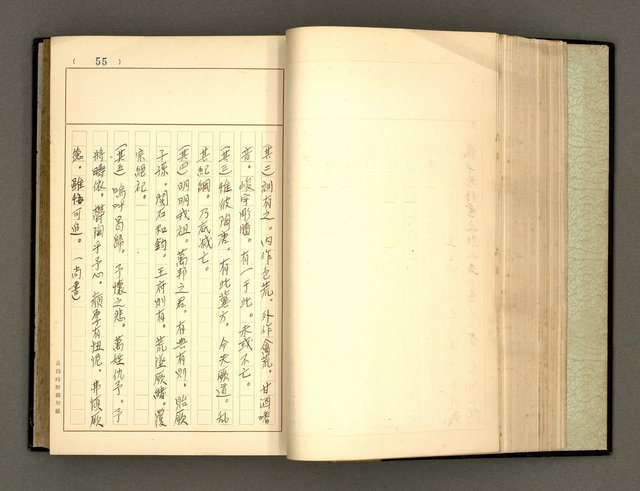 ( 55 )
(其二) 訓有之。內作色荒。外作禽荒。甘酒嗜
音。峻宇彫牆。有一于此。未或不亡。
(其三) 惟彼陶唐。有此冀方。今失厥道。乱
其紀綱。乃底滅亡。
(其四) 明明我祖。萬邦之君。有典有則。貽厥
子孫。関石和鈞。王府則有。荒墜厥緒。覆
宗絕祀。
(其五) 嗚呼曷歸。予懷之悲。萬姓仇予。予
將疇依。鬱陶乎予心。顏厚有忸怩。弗慎厥
德。雖悔可追。(尚書)
黃得時原稿用紙